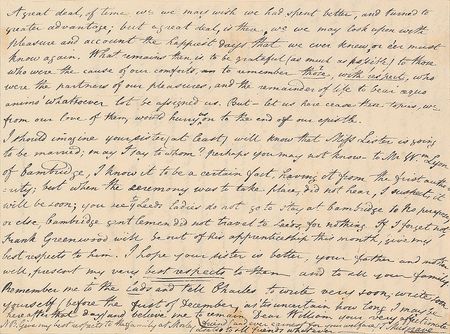 A great deal, of time we may wish we had spent better, and turned to
greater advantage; but a great deal, is there, we may look upon with
pleasure and account the happiest days that we ever knew or ever must
know again. What remains then is to be grateful (as much as possible) to those
who were the cause of our comforts, to remember those, with respect, who
were the partners of our pleasures, and the remainder of life to bear aequo
animo whatsoever lot be assigned us. But let us here cease these topics, we
from our love of them, would hurry on to the end of our epistle.
I should imagine your sister, (at least) will know that Miss Lister is going
to be married; may I say to whom? perhaps you may not know to Mr. Wm. Lyon
of Cambridge, I know it to be a certain fact, having it from the first autho
rity; but when the ceremony was to take place, did not hear, I suspect, it
will be soon; you see Leeds Ladies do not, go to stay at Cambridge to no purpose,
or else, Cambridge gentlemen did not travel to Leeds, for nothing. If I forget not
Frank Greenwood will be out of his apprenticeship this month, give my
best respects to him. I hope your sister is better, your father and mother
well, present my best respects to them and to all your family.
Remember me to the Lads and tell Charles to write very soon, write soon
yourself (before the first of December, as tis uncertain how long I may be
here after that day) and believe me to remain Dear William your very affectionate
NB. Give my best respects to the family at friend and ever earnest for your welfare